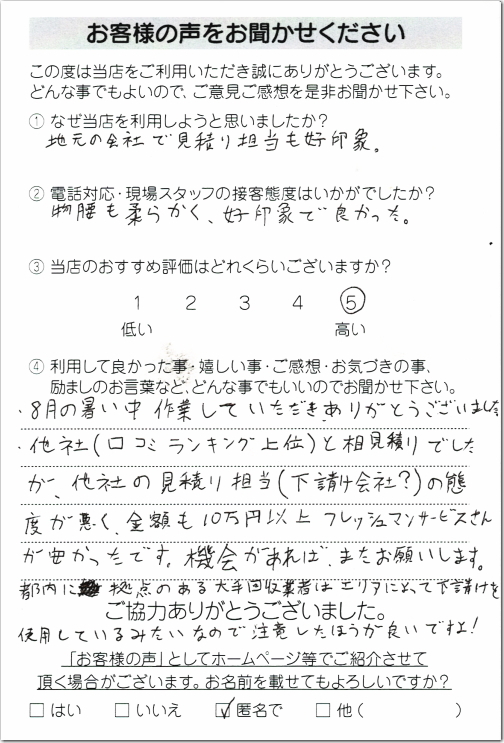 お客様の声をお聞かせください
この度は当店をご利用いただき誠にありがとうございます。
どんな事でもよいので、ご意見ご感想を是非お聞かせ下さい。
① なぜ当店を利用しようと思いましたか?
地元の会社で見積り担当も好印象。
② 電話対応・現場スタッフの接客態度はいかがでしたか?
物腰も柔らかく、好印象で良かった。
③ 当店のおすすめ評価はどれくらいございますか?
1 2 3 4 ⑤
低い 高い
④ 利用して良かった事・嬉しい事・ご感想・お気づきの事、
励ましのお言葉など、どんな事でもいいのでお聞かせ下さい。
・8月の暑い中作業していただきありがとうございました
・他社(口コミランキング上位)と相見積りでした
が、他社の見積り担当(下請け会社?)の態
度が悪く、金額も10万円以上フレッシュマンサービスさん
が安かったです。機会があれば、またお願いします。
都内に拠点のある大手回収業者はエリアによって下請けを
ご協力ありがとうございました。
使用しているみたいなので注意したほうが良いですよ!
「お客様の声」としてホームページ等でご紹介させて
頂く場合がございます。お名前を載せてもよろしいですか?
□ はい □ いいえ ☑ 匿名で □ 他 ( )